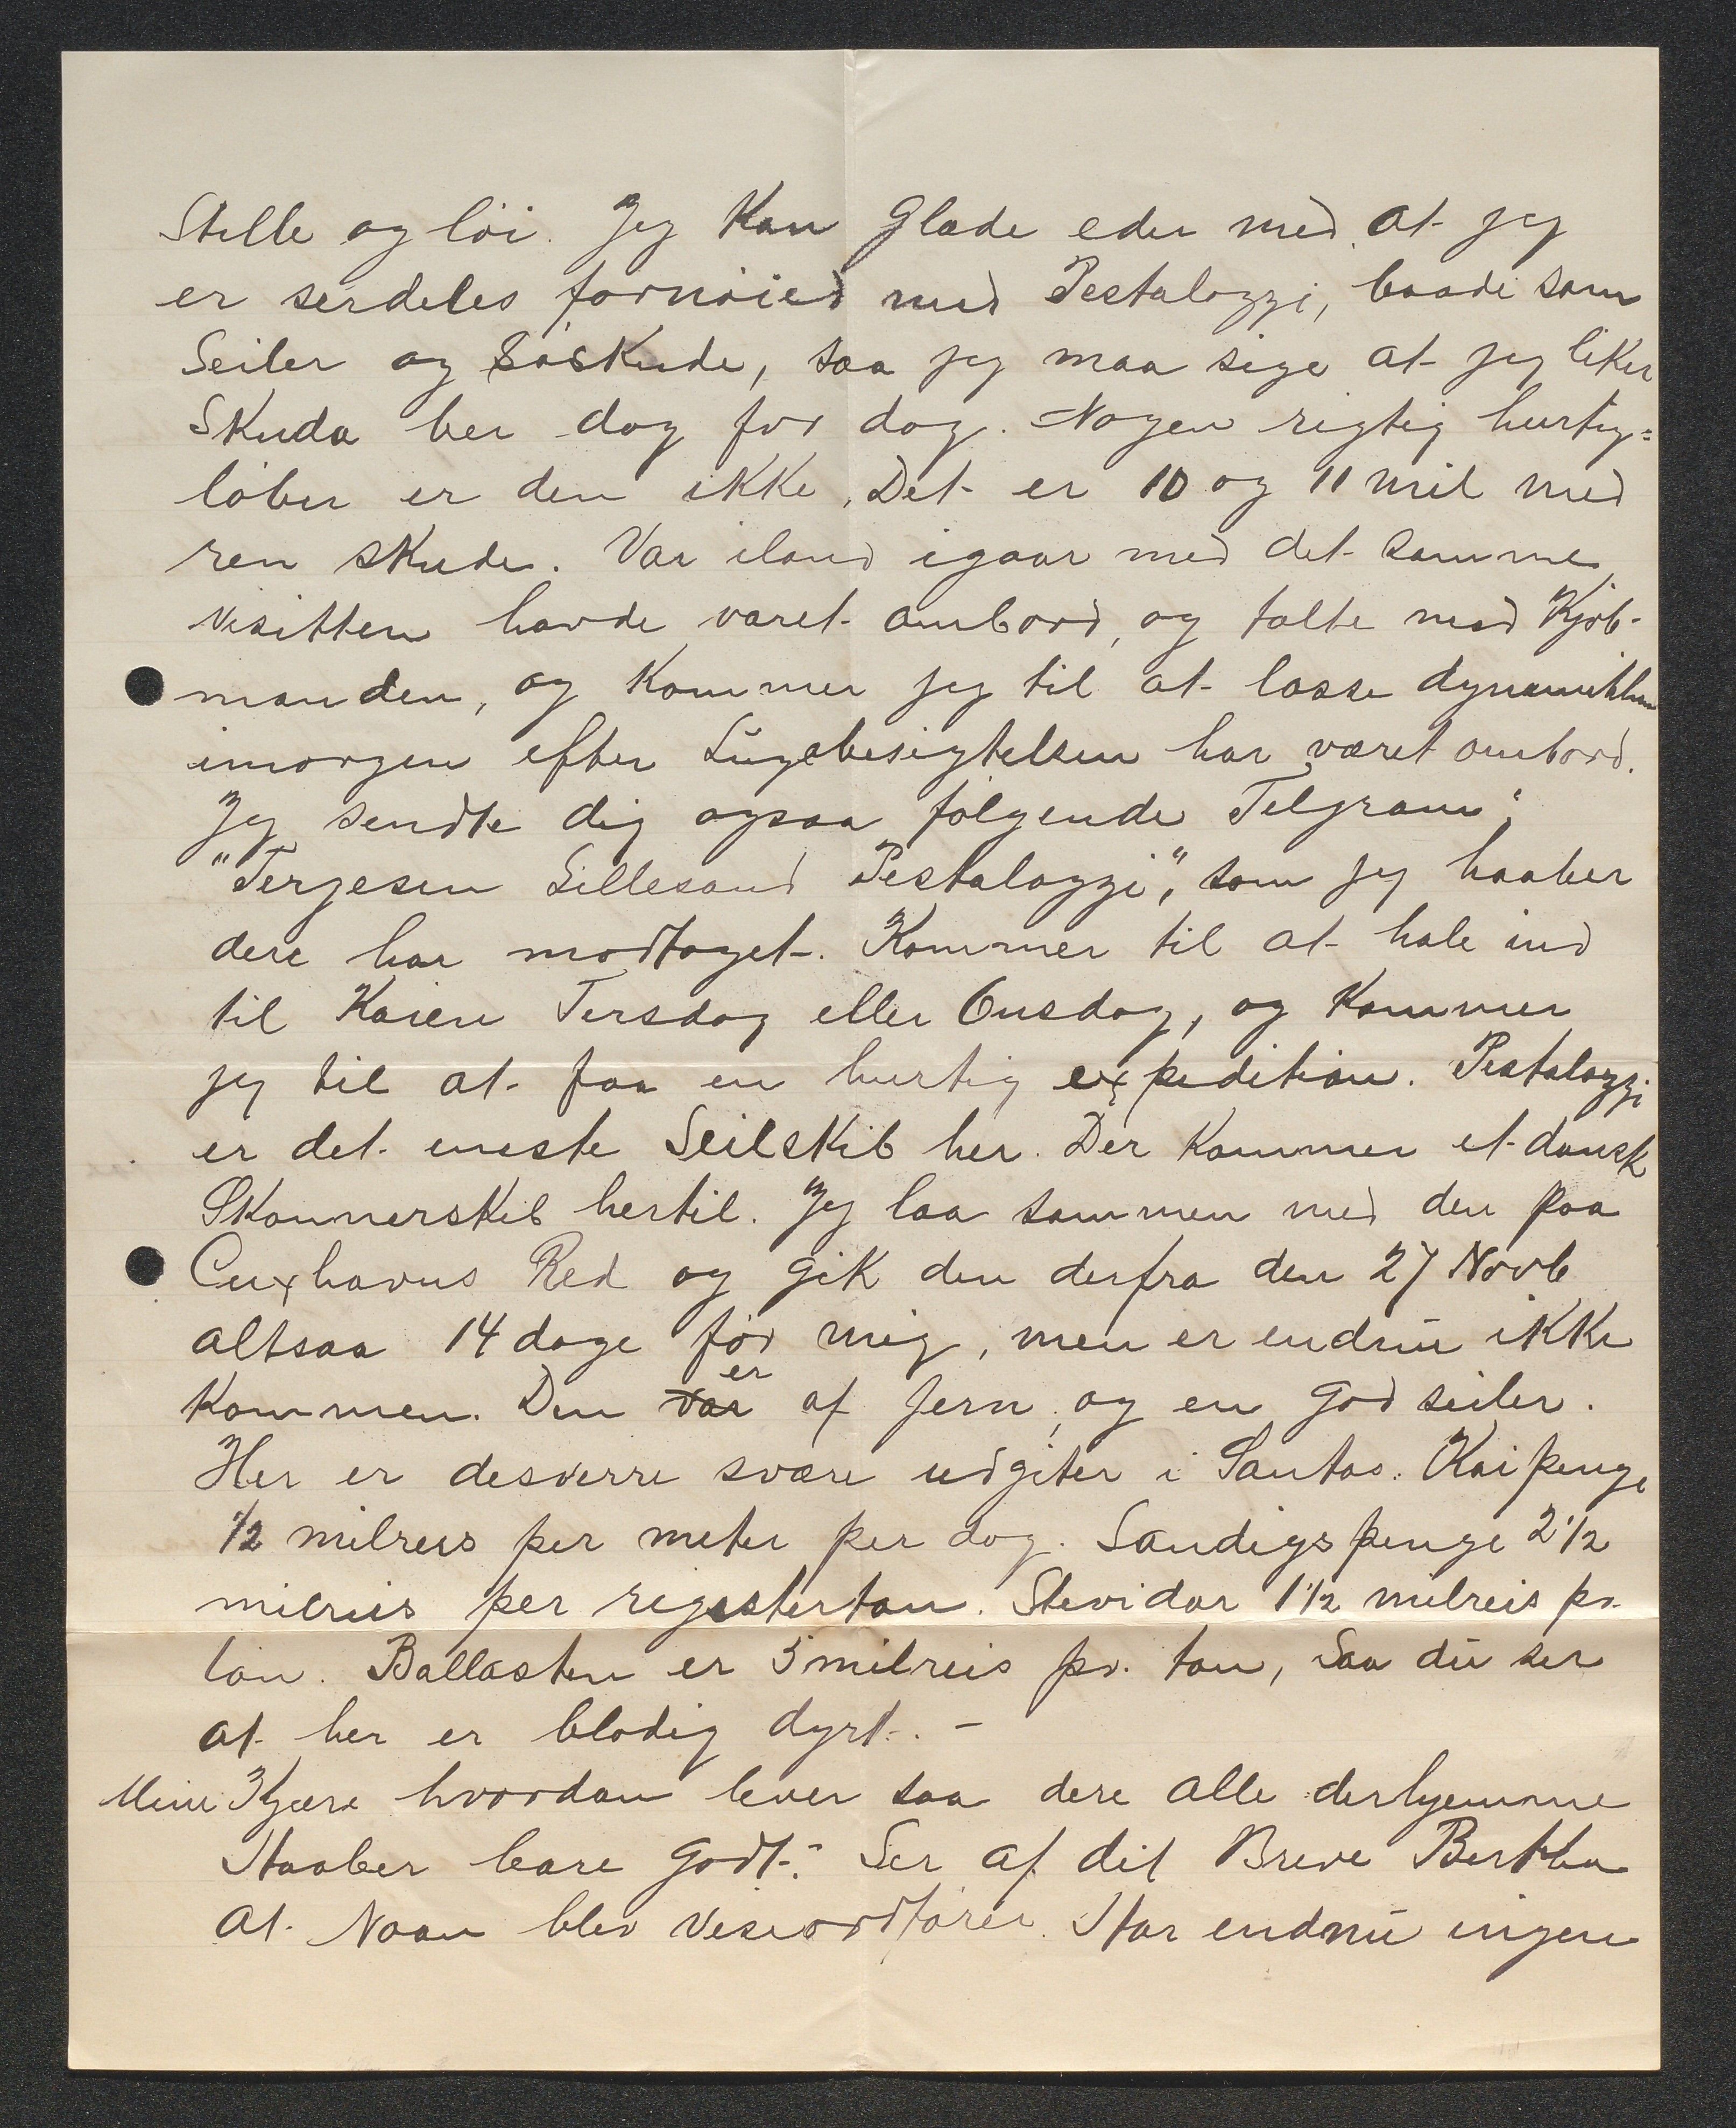 Stille og löi. Jeg Kan Glæde eder med at jeg
er serdeles fornöied med Pestalozzi, baade som
Seiler og Söskude, saa jeg maa sige at jeg liker
Skuda her dag for dag. Nogen rigtig hurtig=
löber er den ikke. Det er 10 og 11 mil med
ren skude. Var iland igaar med det samme
visitten havde været ombord, og talte med Kjöb-
manden, og Kommer jeg til at losse dynamitten
imorgen efter Lugebesigtelsen har været ombord.
Jeg sendte dig ogsaa fölgende Telgram;
"Terjesen Lillesand Pestalozzi", som jeg haaber
dere har modtaget. Kommer til at hale ind
til Kaien Tirsdag eller Onsdag, og Kommer
jeg til at faa en hurtig expedition. Pestalozzi
er det eneste Seilskib her. Der Kommer et dansk
Skonnerskib hertil. Jeg laa sammen med den paa
Cuxhavns Red og gik den derfra den 27 Novb
altsaa 14 dage för mig, men er endnu ikke
kommen. Den var er af jern, og en god seiler.
Her er desverre svære udgiter i Santos. Kaipenge
1/2 milreis per meter per dag. Sandigspenge 2 1/2
milreis per registerton. Stevidor 1 1/2 milreis pr.
ton. Ballasten er 5 milreis pr. ton, saa du ser
at her er blodig dyrt. -
Mine Kjære hvordan lever saa dere alle derhjemme
Haaber bare godt. Ser af dit Breve Bertha
at Noan blev viseordförer. Har endnu ingen